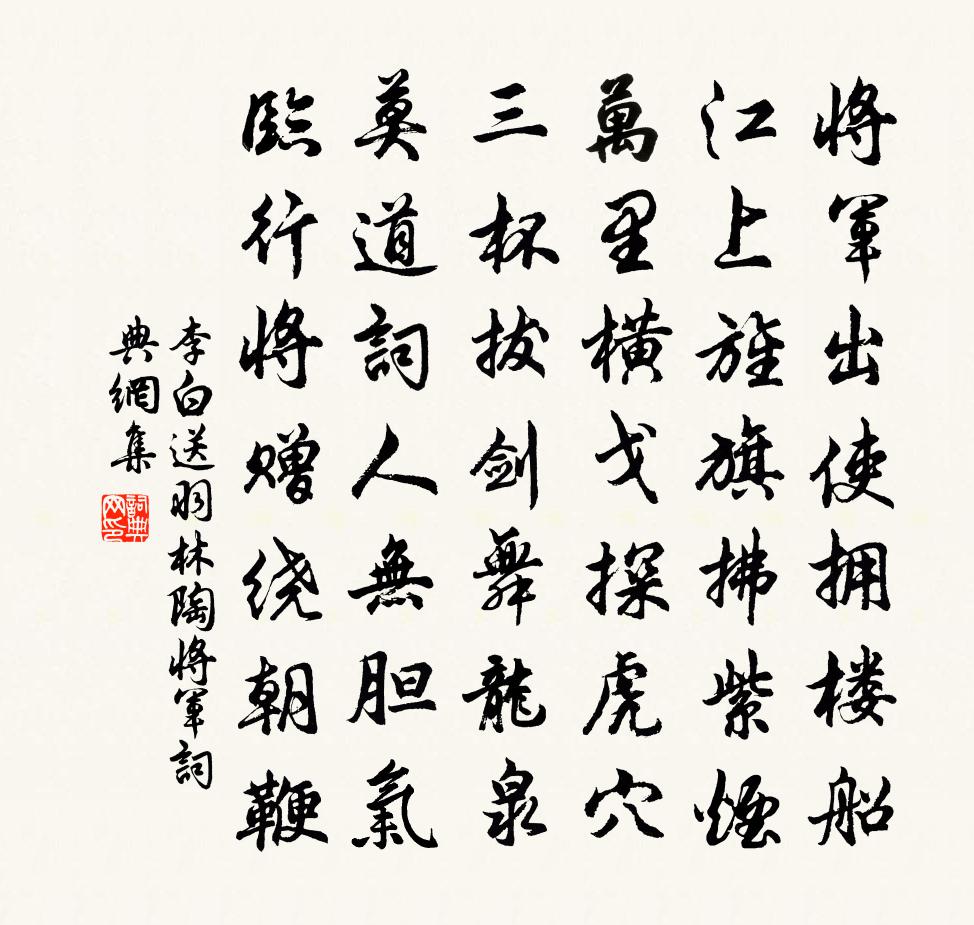 將軍出使拥楼船
江上旌旗拂紫煙
萬里橫戈探虎穴
三杯拔剑舞龍泉
莫道詞人無胆氣
臨行將赠绕朝鞭
李白送羽林陶將軍詞
典網集
詞典网印